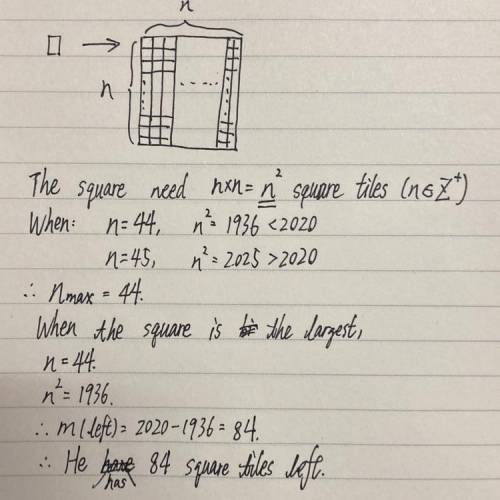 n
n
The square need n×n = n² square tiles (n∈Z⁺)
When: n=44, n²=1936<2020
n=45, n²=2025>2020
∴ nmax = 44.
When the square is the largest,
n=44.
n²=1936.
∴ m(left)=2020-1936=84.
∴ He has 84 square tiles left.